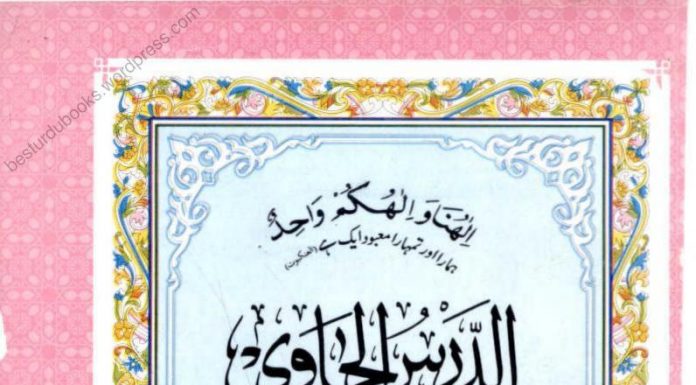 besturdubooks.wordpress.com
اِلٰهُنَا وَ اِلٰهُكُمْ وَاحِدٌ
ہمارا اور تمہارا معبود ایک ہے (العنکبوت)
الدَّرْسُ الْحَاوِی